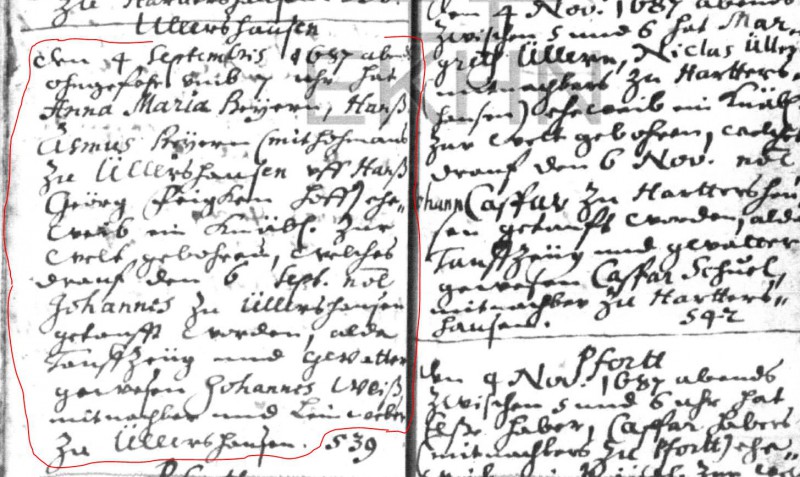 Zu Harttershausen
Üllershausen
den 4 Septembris 1687 abend
ohngefähr umb 7 uhr hat
Anna Maria Beÿern, Hanß
Asmus Beÿern (mithohmans
Zu Üllershausen uff Hanß
Geörg Feigken hoff) ehe„
weib ein Knäbl. Zur
welt gebohren, welches
drauf den 6 Sept. nõe
Johannes Zu Üllershausen
getaufft worden, alda
tauffzeüg und Gevatter
gewesen Johannes Weiß
mitnachbar und Leinweber
Zu Üllershausen. 539
den 4 Nov. 1687 abends
zwischen 5 und 6 hat Mar
greth Üllern, Niclas Üller
mitnachbers Zu Hartters„
hausen) eheweib ein Knäbl
Zur welt gebohren, welches
drauf den 6 Nov. nõe
Johann Caspar Zu Harttershau
sen getaufft worden, alda
Tauffzeüg und gevatter
gewesen Caspar Schuel,
mitnachber Zu Hartters„
hausen. 542
Pfortt
den 4 Nov. 1687 abends
zwischen 5 und 6 uhr hat
haber, Caspar habers
(mitnachbers Zu Pfortt) ehe„
EKHN